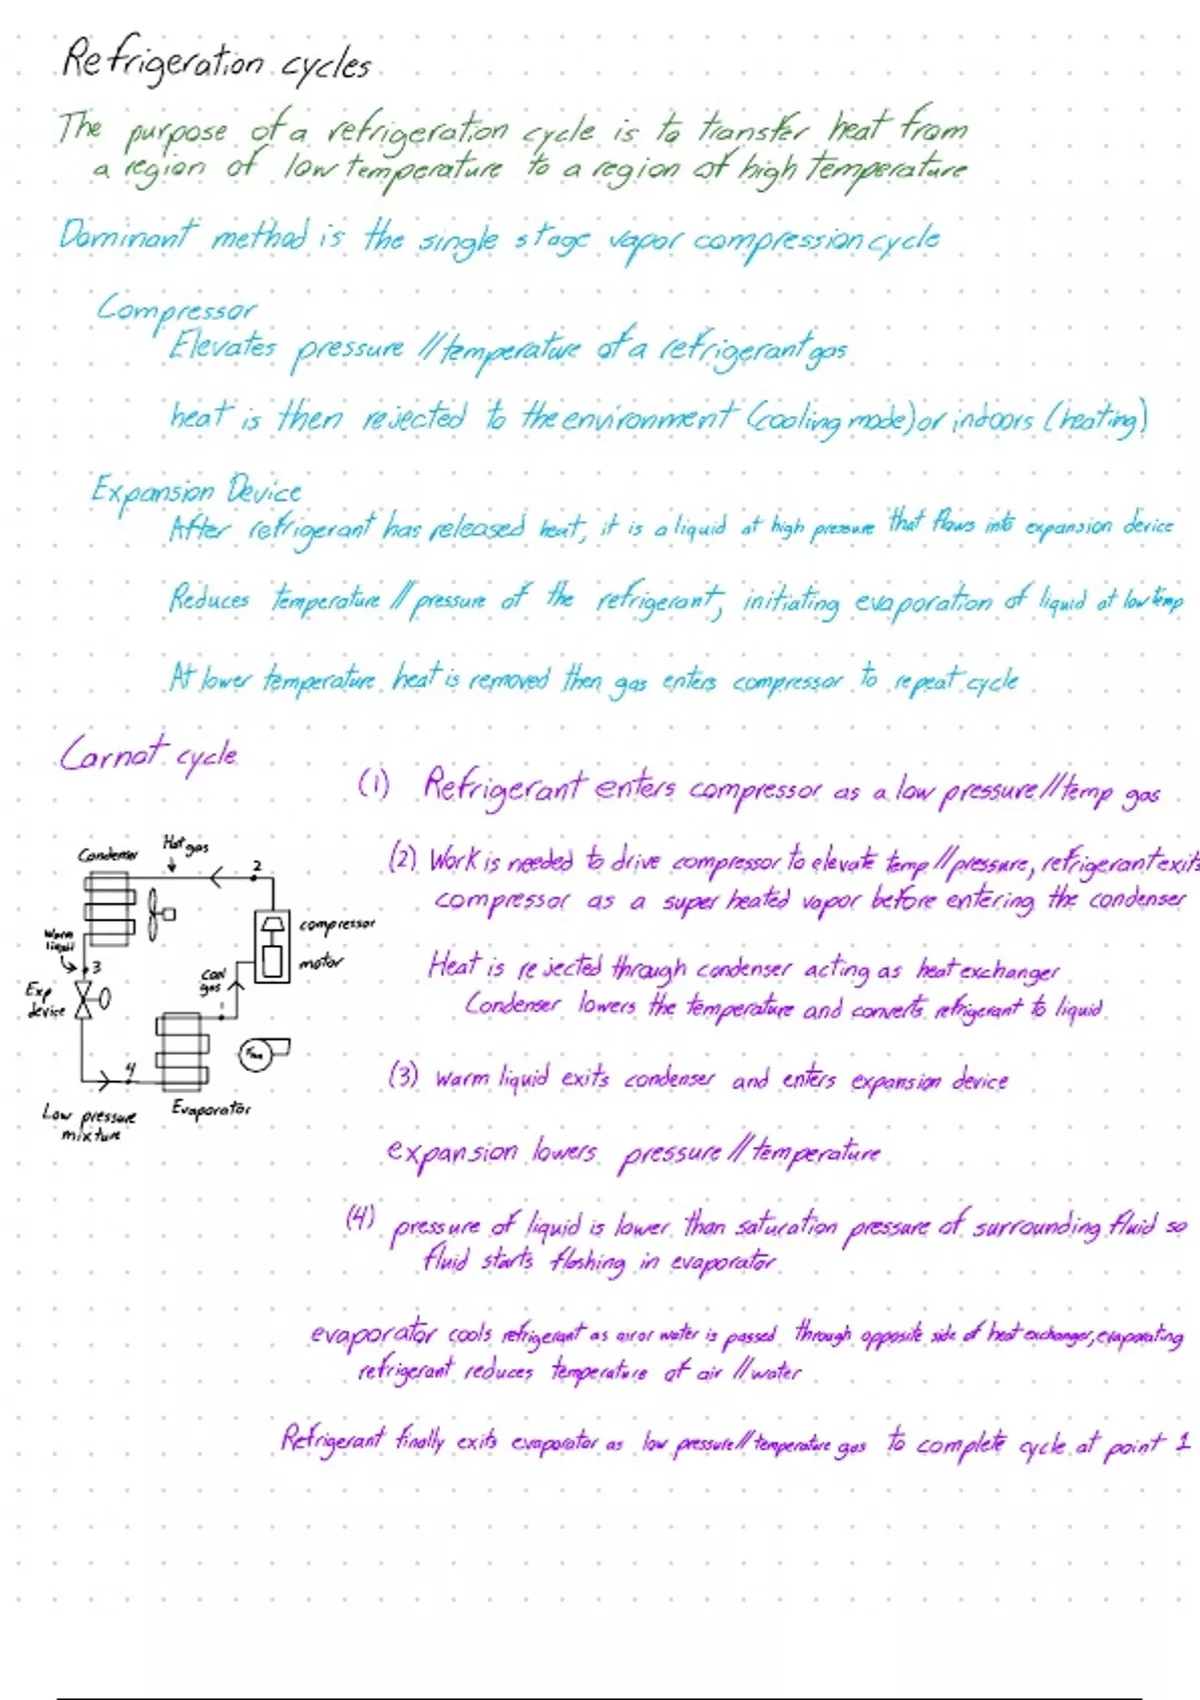 Refrigeration cycles
The purpose of a refrigeration cycle is to transfer heat from
a region of low temperature to a region of high temperature
Dominant method is the single stage vapor compression cycle
Compressor
Elevates pressure // temperature of a refrigerant gas
heat is then rejected to the environment (cooling mode) or indoors (heating)
Expansion Device
After refrigerant has released heat, it is a liquid at high pressure that flows into expansion device
Reduces temperature // pressure of the refrigerant, initiating evaporation of liquid at low temp
At lower temperature heat is removed then gas enters compressor to repeat cycle
Carnot cycle
(1) Refrigerant enters compressor as a low pressure // temp gas
(2) Work is needed to drive compressor to elevate temp // pressure, refrigerant exits
compressor as a super heated vapor before entering the condenser
Heat is rejected through condenser acting as heat exchanger
Condenser lowers the temperature and converts refrigerant to liquid
(3) warm liquid exits condenser and enters expansion device
expansion lowers pressure // temperature
(4) pressure of liquid is lower than saturation pressure of surrounding fluid so
fluid starts flashing in evaporator
evaporator cools refrigerant as air or water is passed through opposite side of heat exchanger, evaporating
refrigerant reduces temperature of air // water
Refrigerant finally exits evaporator as low pressure // temperature gas to complete cycle at point 1
Condenser
Hot gas
2
compressor
motor
Warm
liquid
3
Cool
gas
1
Exp
device
Fan
4
Low pressure
mixture
Evaporator